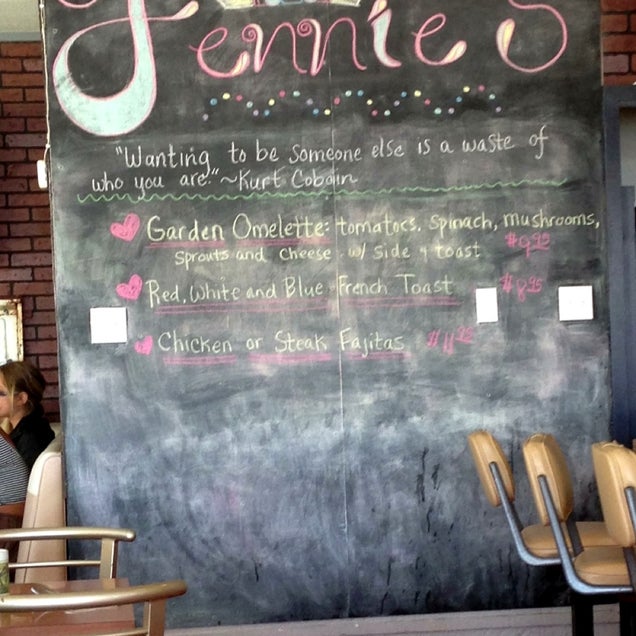 Jennie's
"Wanting to be someone else is a waste of
who you are." ~Kurt Cobain
Garden Omelette: tomatoes, spinach, mushrooms,
Sprouts and cheese w/ side & toast $9.95
Red, White and Blue French Toast $8.95
Chicken or Steak Fajitas $11.25